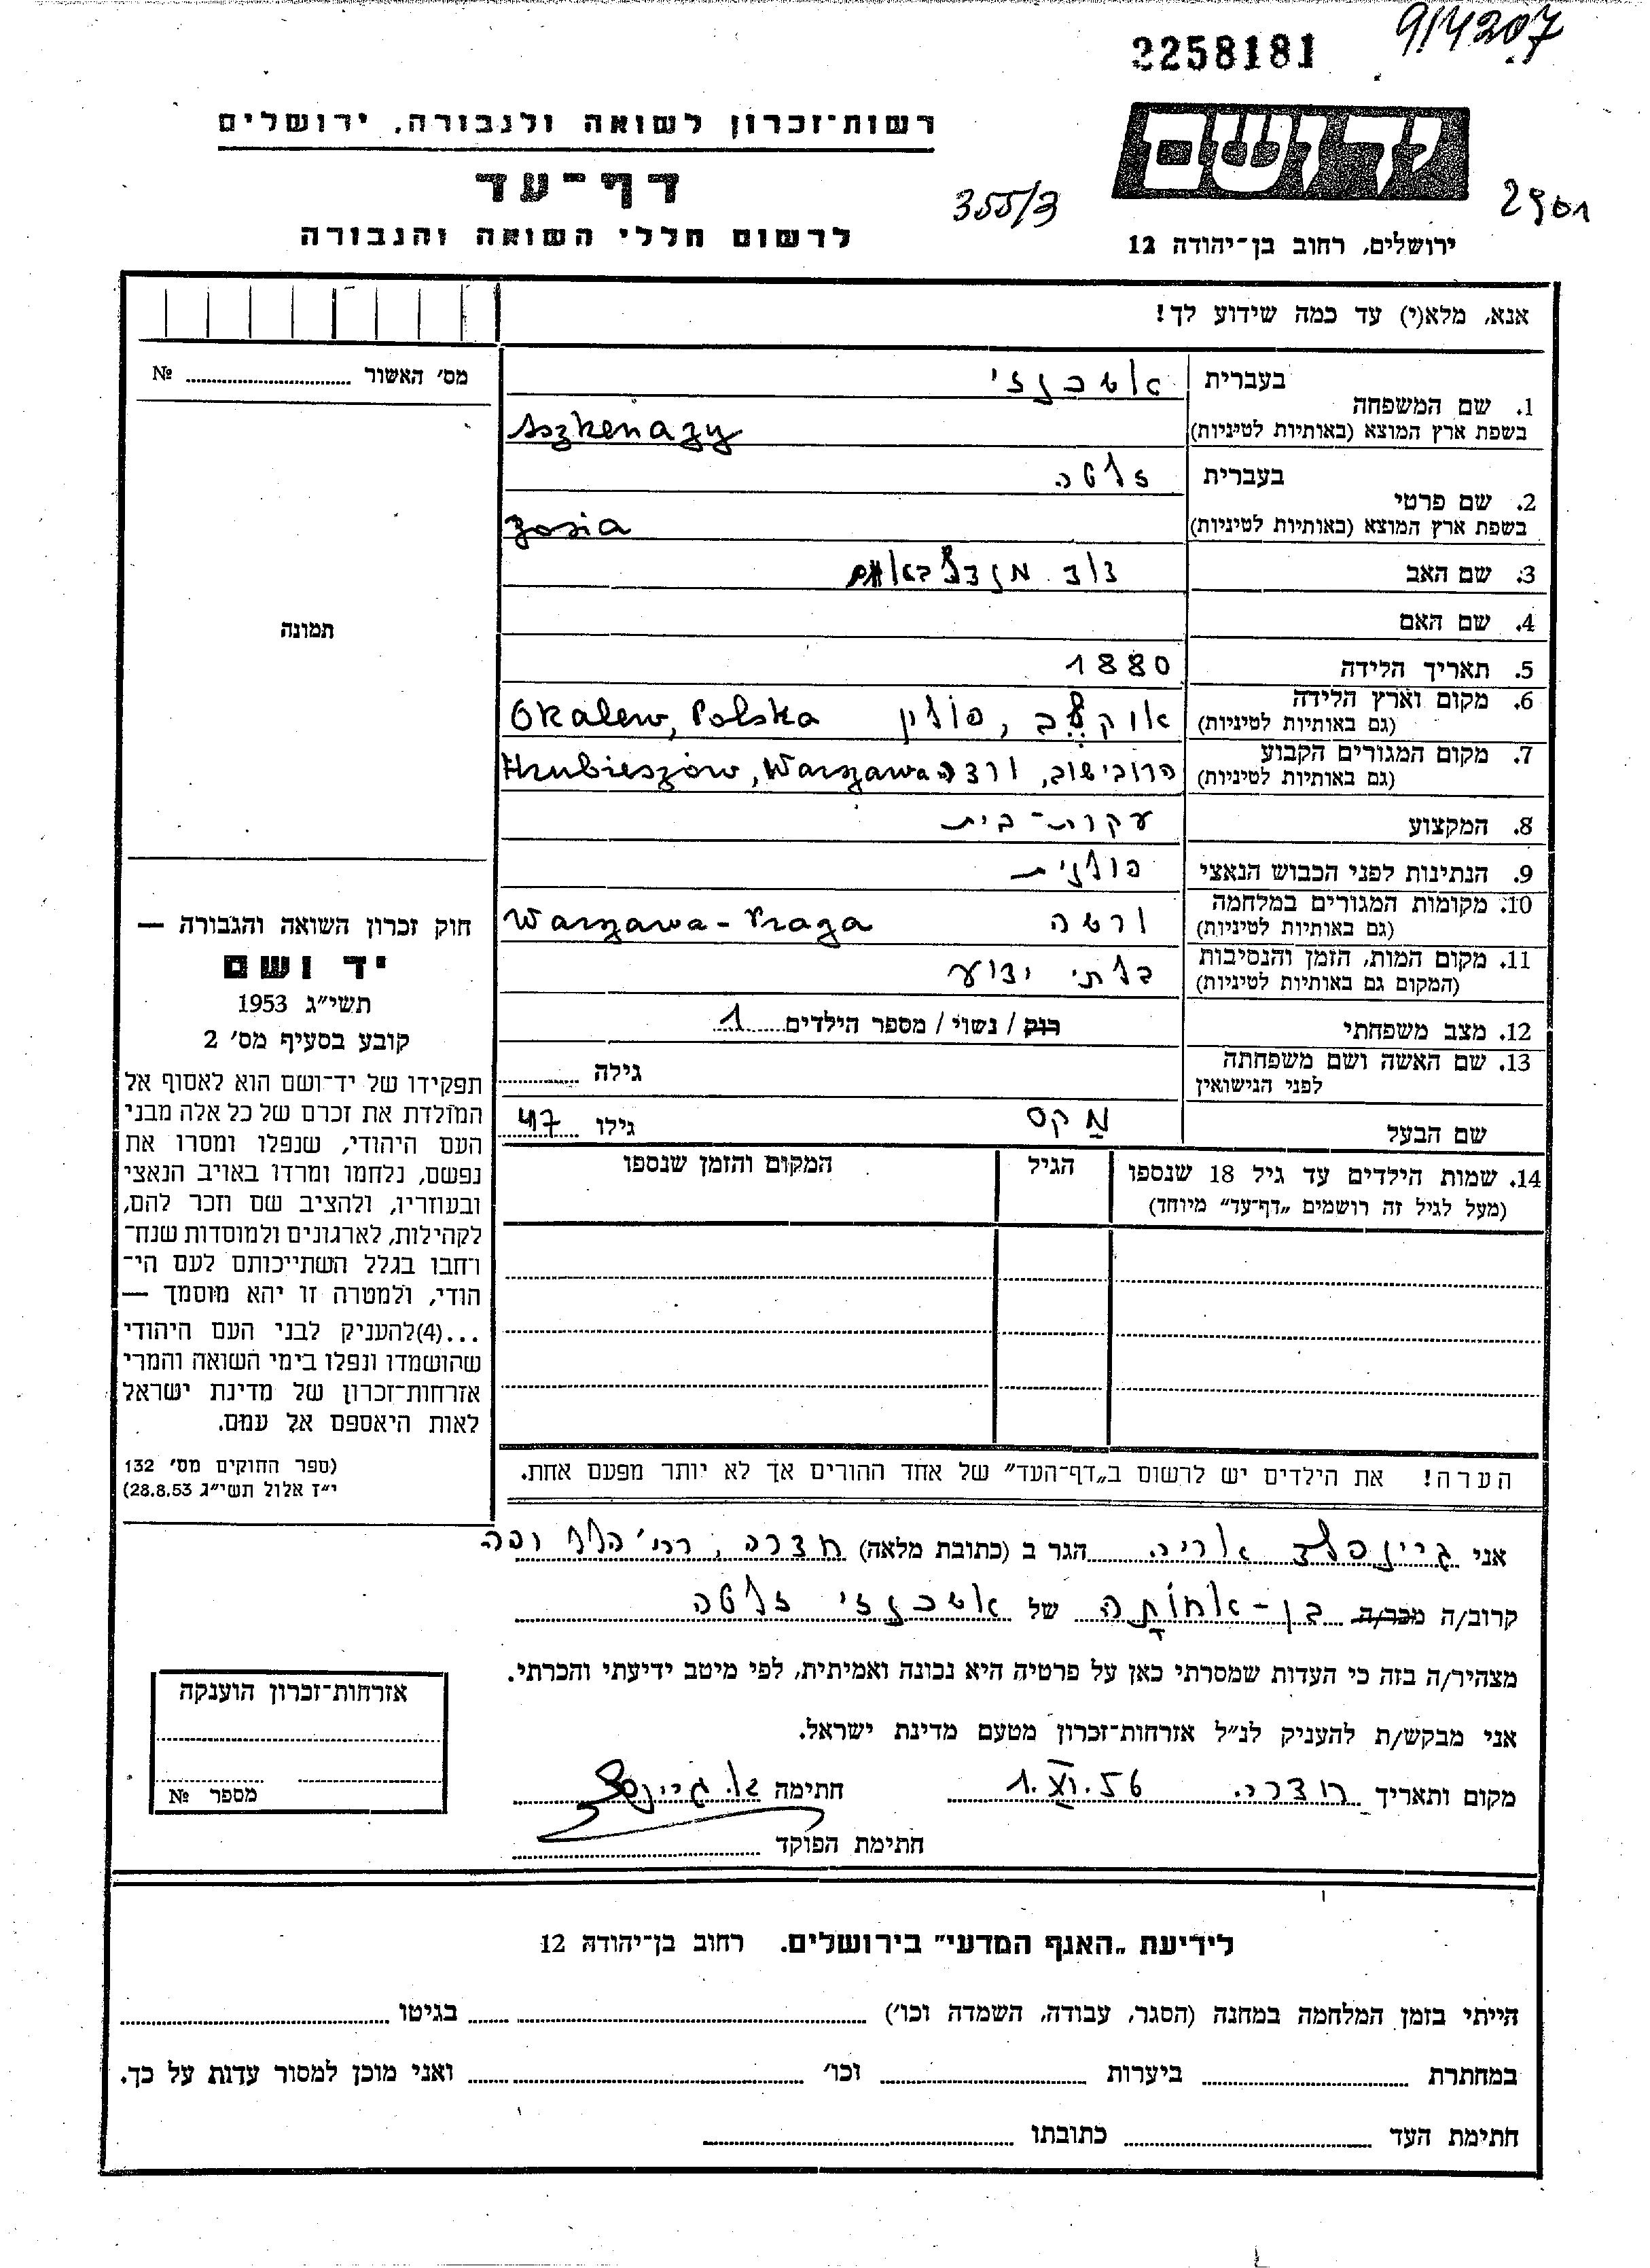 9/4207
2258181
ידושם
רשות־זכרון לשואה ולגבורה, ירושלים
דף־עד
355/3
לרשום חללי השואה והגבורה
ירושלים, רחוב בן־יהודה 12
אנא, מלא(י) עד כמה שידוע לך!
מס׳ האשור № ........
בעברית אשכנזי
1. שם המשפחה
בשפת ארץ המוצא (באותיות לטיניות) Aszkenazy
בעברית זלטה
2. שם פרטי
בשפת ארץ המוצא (באותיות לטיניות) Zosia
3. שם האב דוד מנדלבאום
4. שם האם
תמונה
5. תאריך הלידה 1880
6. מקום וארץ הלידה
(גם באותיות לטיניות) פולין Okalew, Polska
7. מקום המגורים הקבוע
(גם באותיות לטיניות) הרובישוב, Hrubieszów, Warszawa
8. המקצוע עקרת־בית
9. הנתינות לפני הכבוש הנאצי פולנית
10. מקומות המגורים במלחמה
(גם באותיות לטיניות) ורשה Warszawa - Praga
11. מקום המות, הזמן והנסיבות
(המקום גם באותיות לטיניות) בלתי ידוע
12. מצב משפחתי רוק / נשוי / מספר הילדים 1
13. שם האשה ושם משפחתה
לפני הנישואין גילה ........
שם הבעל מקס גילו 47
14. שמות הילדים עד גיל 18 שנספו הגיל המקום והזמן שנספו
(מעל לגיל זה רושמים „דף־עד״ מיוחד)
חוק זכרון השואה והגבורה —
יד ושם
תשי״ג 1953
קובע בסעיף מס׳ 2
תפקידו של יד־ושם הוא לאסוף אל
המולדת את זכרם של כל אלה מבני
העם היהודי, שנפלו ומסרו את
נפשם, נלחמו ומרדו באויב הנאצי
ובעוזריו, ולהציב שם וזכר להם,
לקהילות, לארגונים ולמוסדות שנח־
רחבו בגלל השתייכותם לעם הי־
הודי, ולמטרה זו יהא מוסמך —
...(4)להעניק לבני העם היהודי
שהושמדו ונפלו בימי השואה והמרי
אזרחות־זכרון של מדינת ישראל
לאות היאספם אל עמם.
(ספר החוקים מס׳ 132
י״ז אלול תשי״ג 28.8.53)
הערה! את הילדים יש לרשום ב„דף־העד״ של אחד ההורים אך לא יותר מפעם אחת.
אני גרינפלד אריה הגר ב (כתובת מלאה) חדרה, רח׳ הלל יפה
קרוב/ה מכר/ה בן-אחותה של אשכנזי זלטה
מצהיר/ה בזה כי העדות שמסרתי כאן על פרטיה היא נכונה ואמיתית, לפי מיטב ידיעתי והכרתי.
אני מבקש/ת להעניק לנ״ל אזרחות־זכרון מטעם מדינת ישראל.
מקום ותאריך חדרה 1.XI.56 חתימה
חתימת הפוקד
אזרחות־זכרון הוענקה
מספר №
לידיעת „האגף המדעי״ בירושלים. רחוב בן־יהודה 12
הייתי בזמן המלחמה במחנה (הסגר, עבודה, השמדה וכו׳) ........ בגיטו ........
במחתרת ........ ביערות ........ וכו׳ ........ ואני מוכן למסור עדות על כך.
חתימת העד ........ כתובתו ........